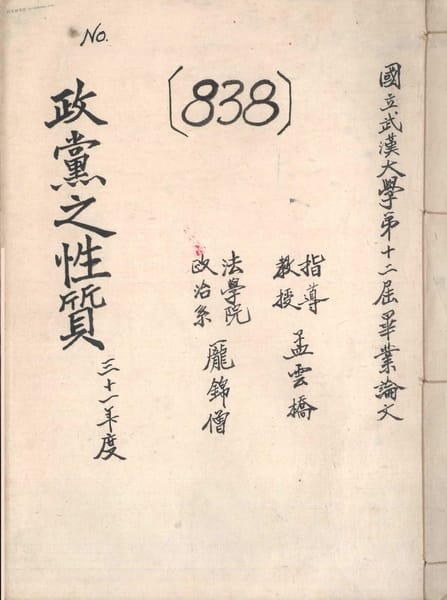 國立武漢大學第十二屆畢業論文
指導
教授
孟雲橋
法學院
政治系
龐錦僧
No.
(838)
政黨之性質
三十一年度